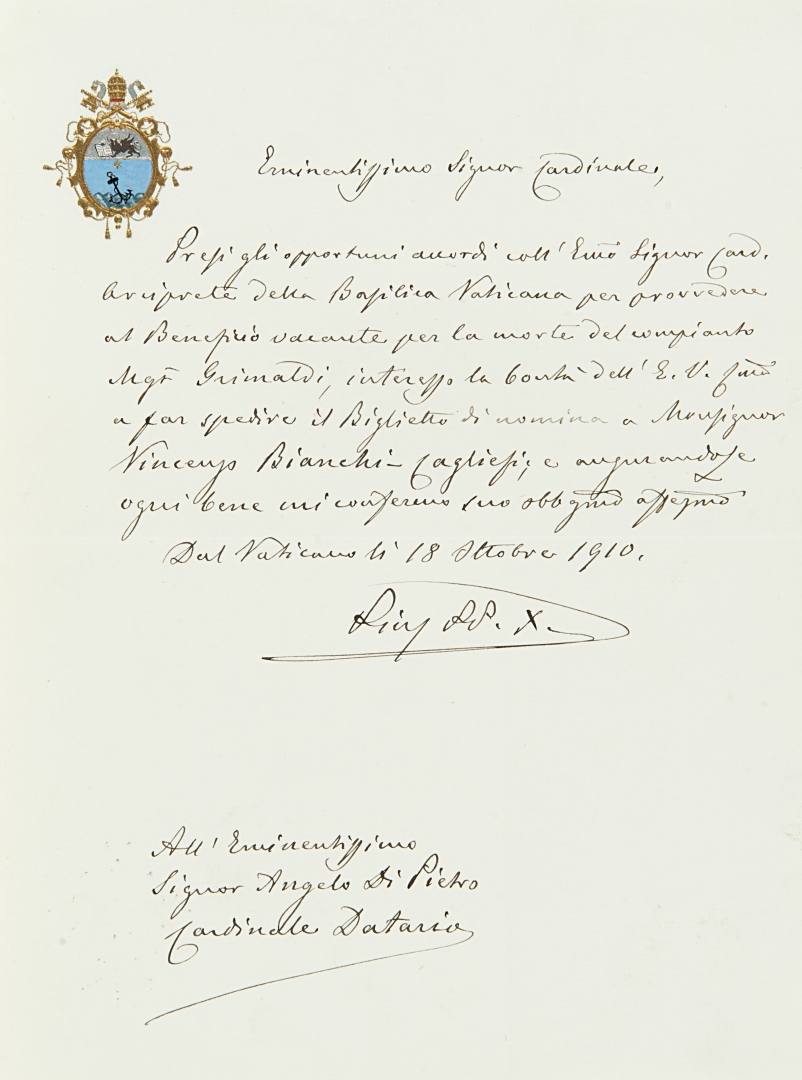 Eminentissimo Signor Cardinale,
Presi gli opportuni accordi coll' Emo Signor Card.
Arciprete della Basilica Vaticana per provvedere
al Beneficio vacante per la morte del compianto
Mgr Grimaldi, interesso la bontà dell' E. V. Rma
a far spedire il Biglietto di nomina a Monsignor
Vincenzo Bianchi-Cagliesi; e augurandole
ogni bene mi confermo suo obbgmo affezmo
Dal Vaticano li 18 Ottobre 1910.
Pius PP. X.
All' Eminentissimo
Signor Angelo Di Pietro
Cardinale Datario